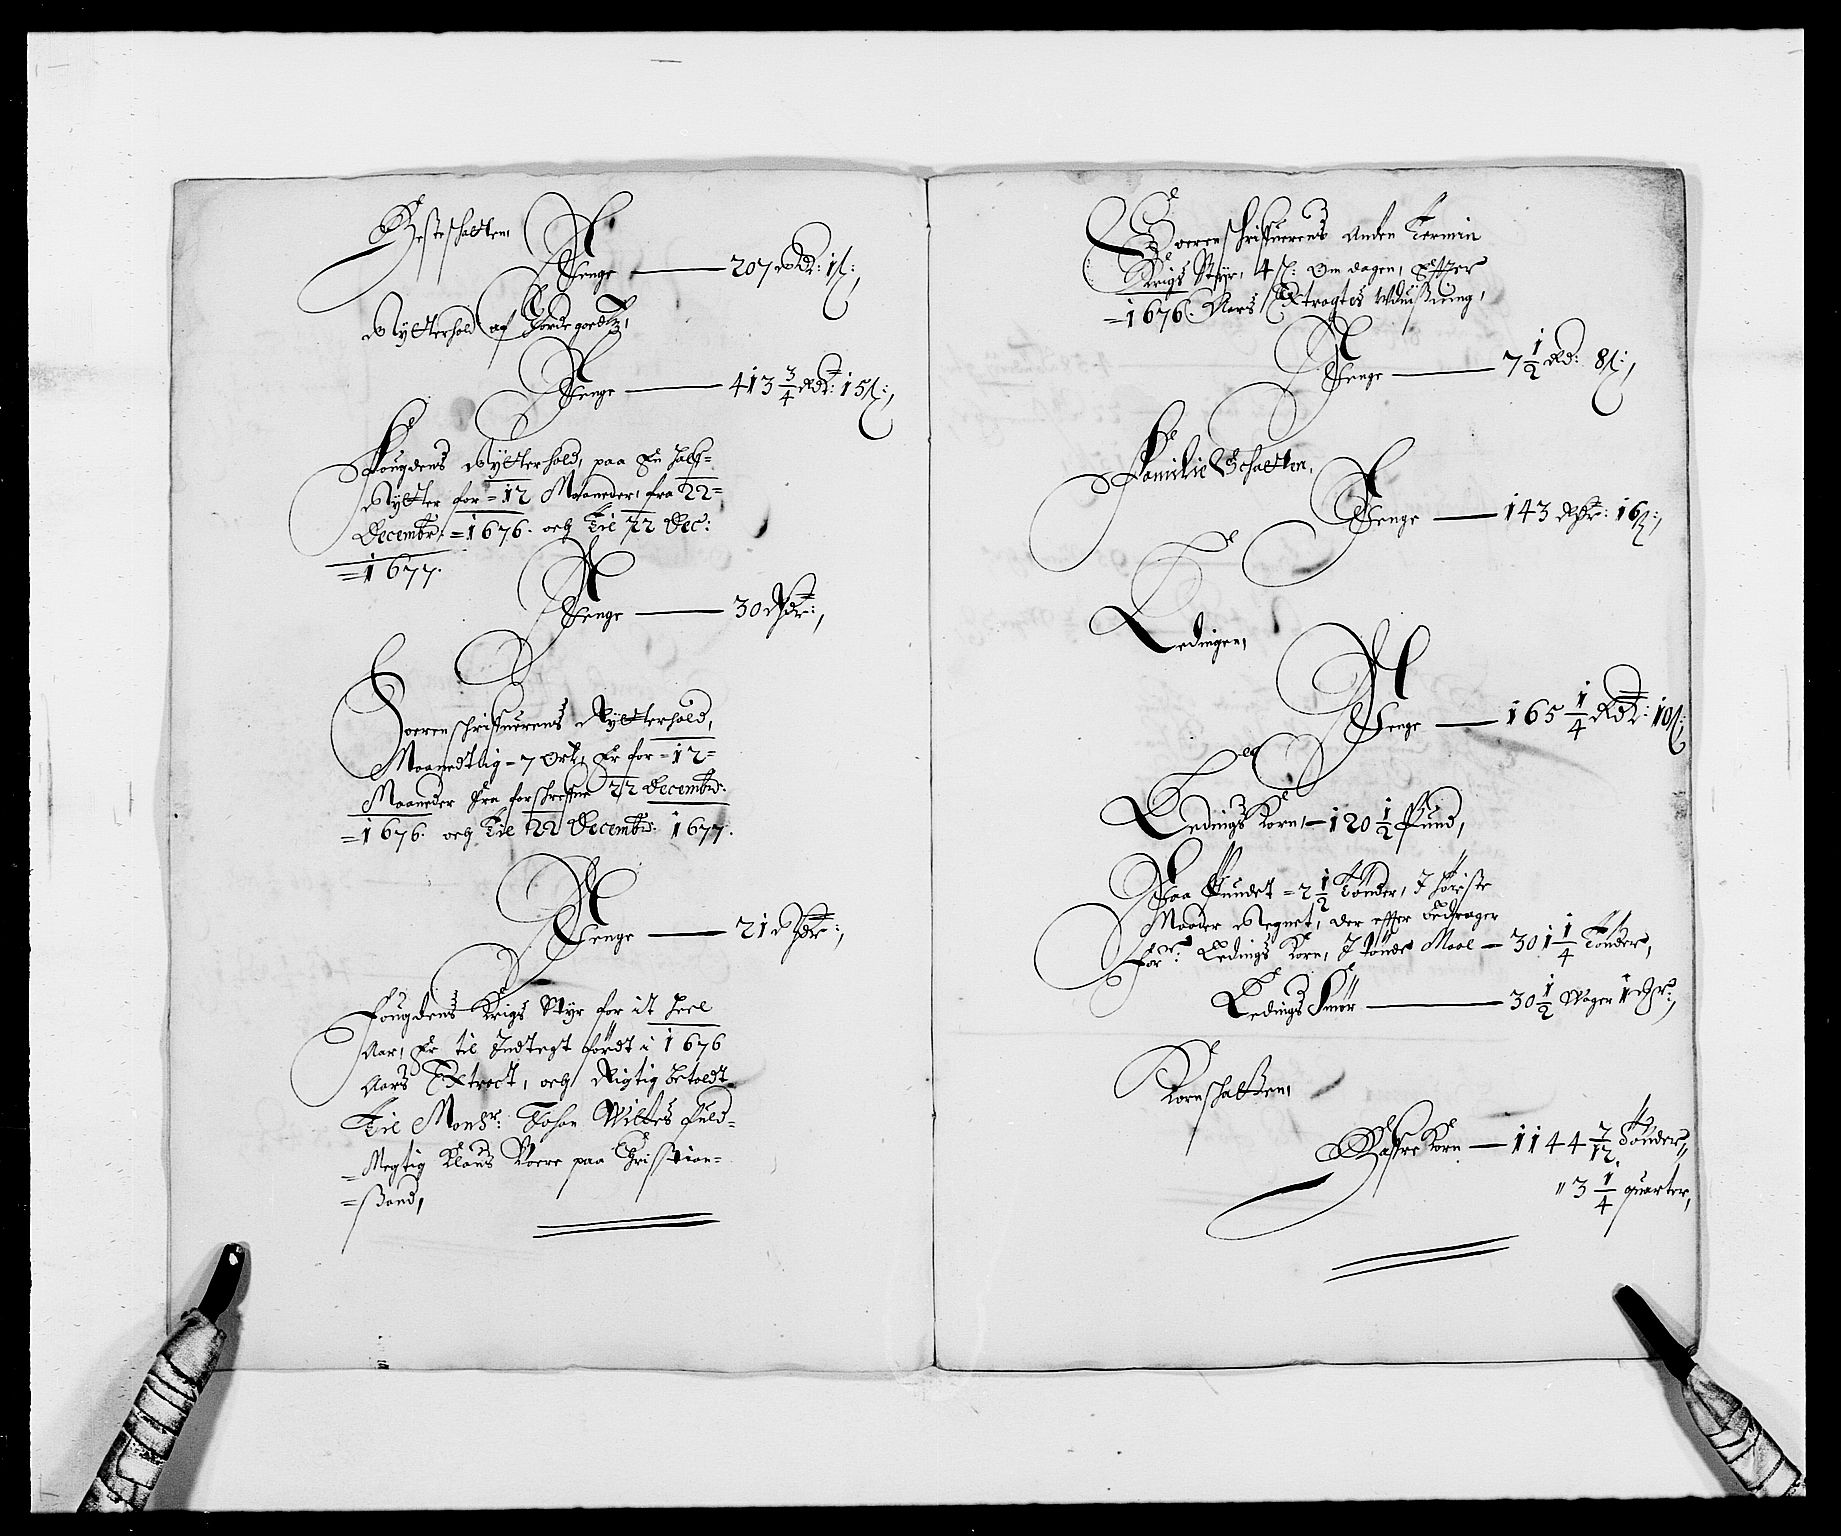 Hesteschatten,
Penge — 207 Rdr: 1 s:,
Rÿtterhold af Jordegoedtz,
Penge — 413 3/4 Rdr: 15 s:,
Fougdens Rÿtterhold, paa En half=
Rÿtter for =12 Maaneder, fra 22=
Decembr: =1676. och Til 22 Dec:
=1677.
Penge — 30 Rdr:,
Soerenschrifuerens Rÿtterhold,
Maanedtlig =7 Ort, Er for =12=
Maaneder fra forschrefne 22 Decembr:
=1676. och Til 22 Decembr: 1677.
Penge — 21 Rdr:,
Fougdens Krigs Styr for it heel
Aar, Er til Indtegt födt i 1676
Aars Extract, och Rigtig betaldt
Til Monsr: Johan Wiltes fuld=
=Megtig Klaus Koere paa Christian=
=sand,
Soerenschrifuerens anden Termin
Krigs Styr, 4 s: om dagen, Effter
=1676. Aars Extragtes Wduisning,
Penge — 7 1/2 Rd: 8 s:,
Familie Schatten,
Penge — 143 Rdr: 16 s:,
Ledingen,
Penge — 165 1/4 Rdr: 10 s:
Ledings Korn, — 120 1/2 Pund,
Paa Pundet =2 1/2 Tönder, I höjste
Maader Regnet, der effter bedrager
for: Ledings Korn, I tönde Maal — 301 1/4 Tönder,
Ledings Smör — 30 1/2 Woger 1
Kornschatten,
Hafre Korn — 1144 7/12 Tönder,
" 3 1/4 quarter,